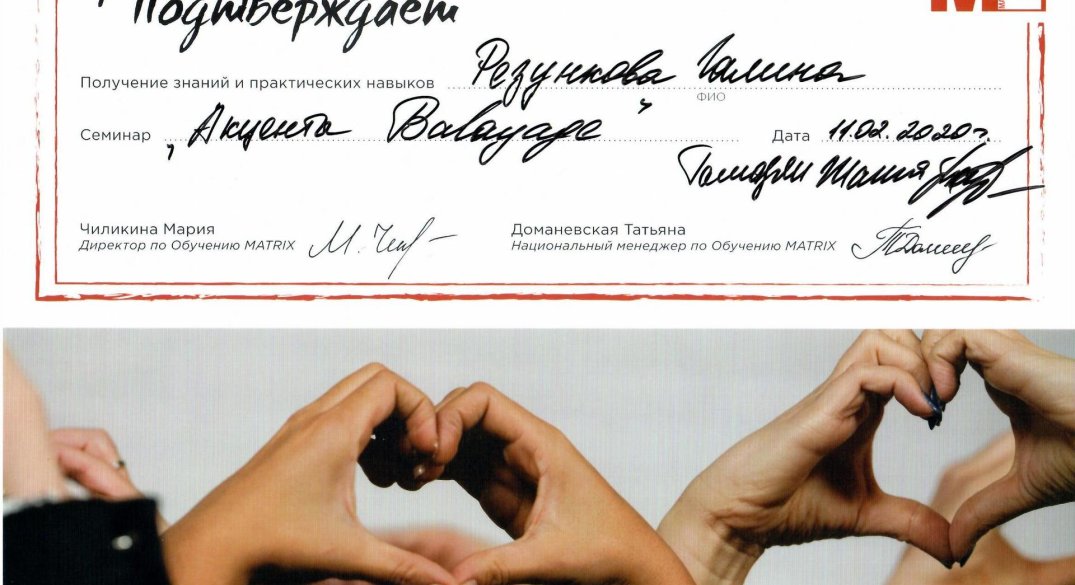 Подтверждает
Получение знаний и практических навыков Резункова Галина
ФИО
Семинар „Акценты Balayage” Дата 11.02.2020г.
Чиликина Мария
Директор по Обучению MATRIX
Доманевская Татьяна
Национальный менеджер по Обучению MATRIX